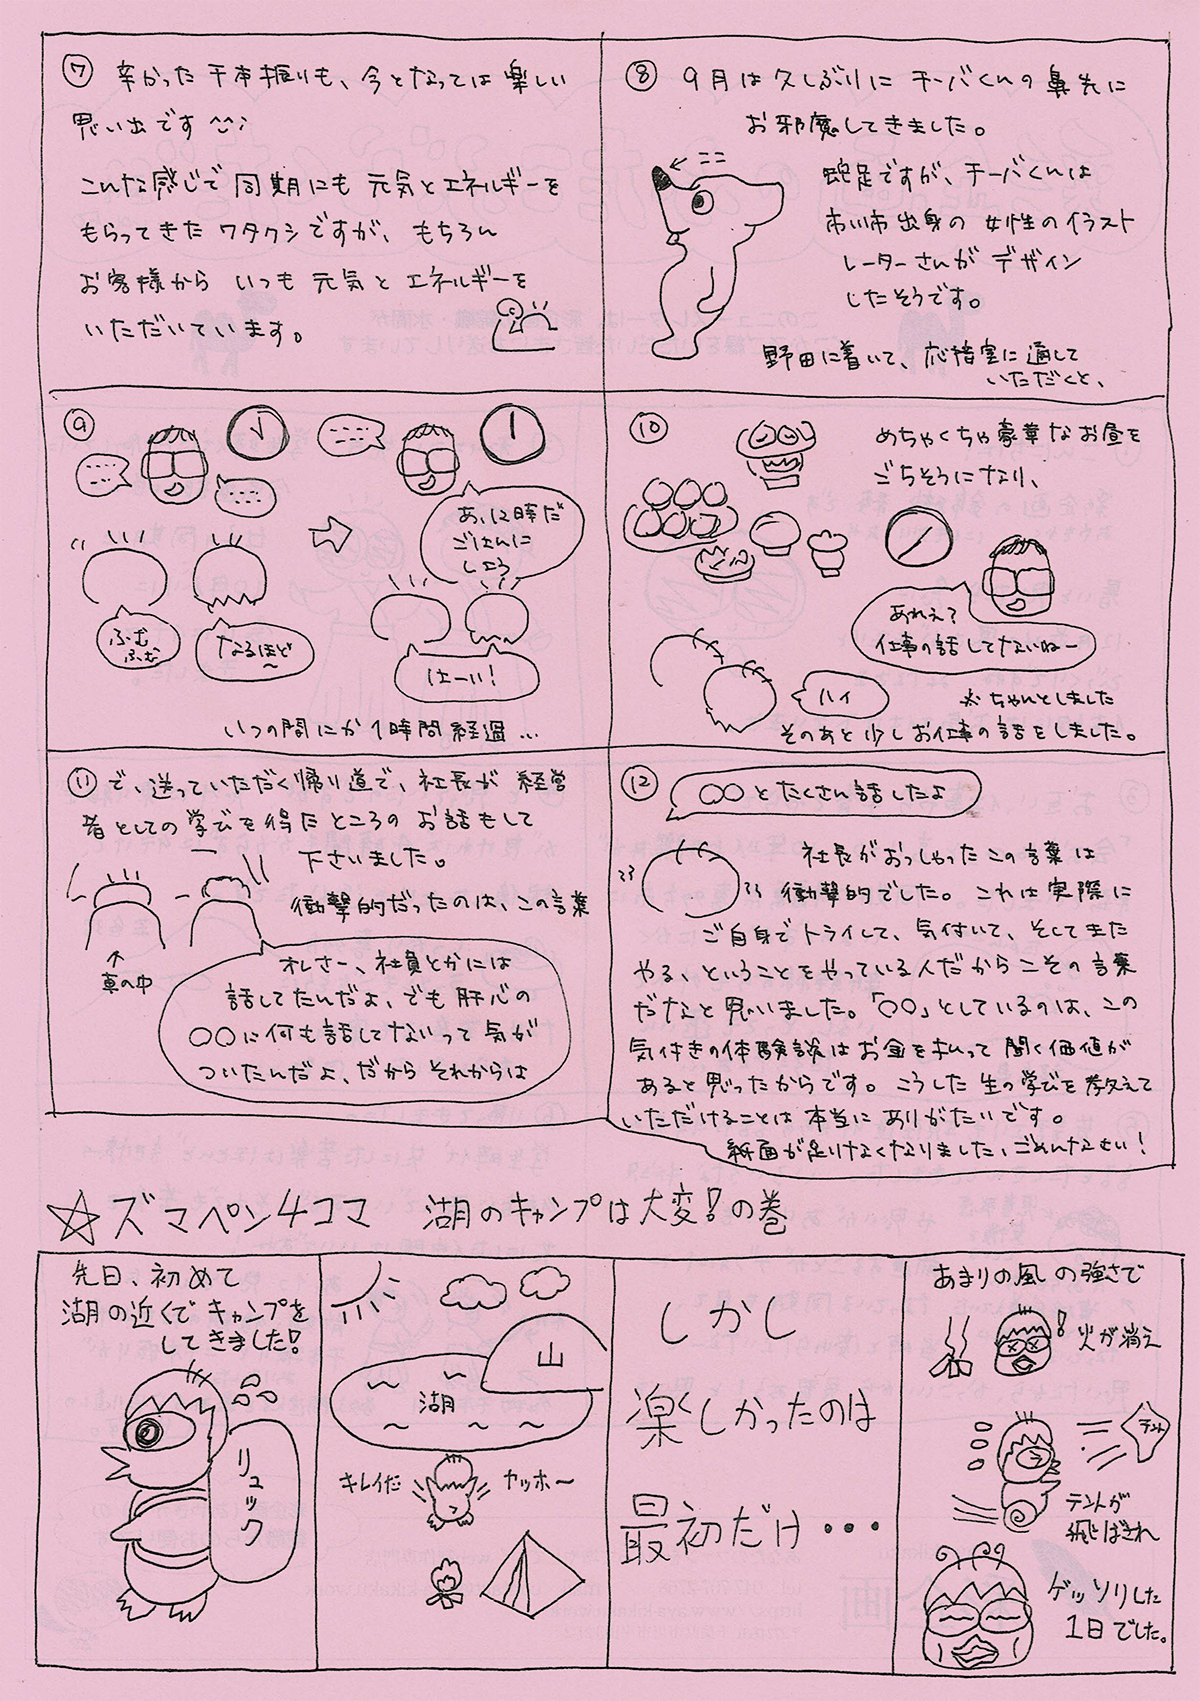 ⑦ 辛かった千本振りも、今となっては楽しい
思い出です^^;
こんな感じで同期にも元気とエネルギーを
もらってきたワタクシですが、もちろん
お客様からいつも元気とエネルギーを
いただいています。
⑧ 9月は久しぶりにチーバくんの鼻先に
お邪魔してきました。
ココ
蛇足ですが、チーバくんは
市川市出身の女性のイラスト
レーターさんがデザイン
したそうです。
野田に着いて、応接室に通して
いただくと、
⑨
あ、12時だ
ごはんに
しよう
ふむ
ふむ
なるほど
～
はーい!
いつの間にか1時間経過…
⑩ めちゃくちゃ豪華なお昼を
ごちそうになり、
あれえ?
仕事の話してないねー
ハイ
※ちゃんとしました
そのあと少しお仕事の話をしました。
⑪ で、送っていただく帰り道で、社長が経営
者としての学びを得たところのお話もして
下さいました。
衝撃的だったのは、この言葉
↑
車の中
オレさー、社員とかには
話してたんだよ、でも肝心の
〇〇に何も話してないって気が
ついたんだよ、だからそれからは
⑫ 〇〇とたくさん話したよ
社長がおっしゃったこの言葉は
衝撃的でした。これは実際に
ご自身でトライして、気付いて、そしてまた
やる、ということをやっている人だからこその言葉
だなと思いました。「〇〇」としているのは、この
気付きの体験談はお金を払って聞く価値が
あると思ったからです。こうした生の学びを教えて
いただけることは本当にありがたいです。
紙面が足りなくなりました、ごめんなさい!
☆ズマペン4コマ 湖のキャンプは大変!の巻
先日、初めて
湖の近くでキャンプを
してきました!
リュック
山
湖
キレイだ
ヤッホ～
しかし
楽しかったのは
最初だけ・・・
あまりの風の強さで
火が消え
テント
テントが
飛ばされ
ゲッソリした
1日でした。